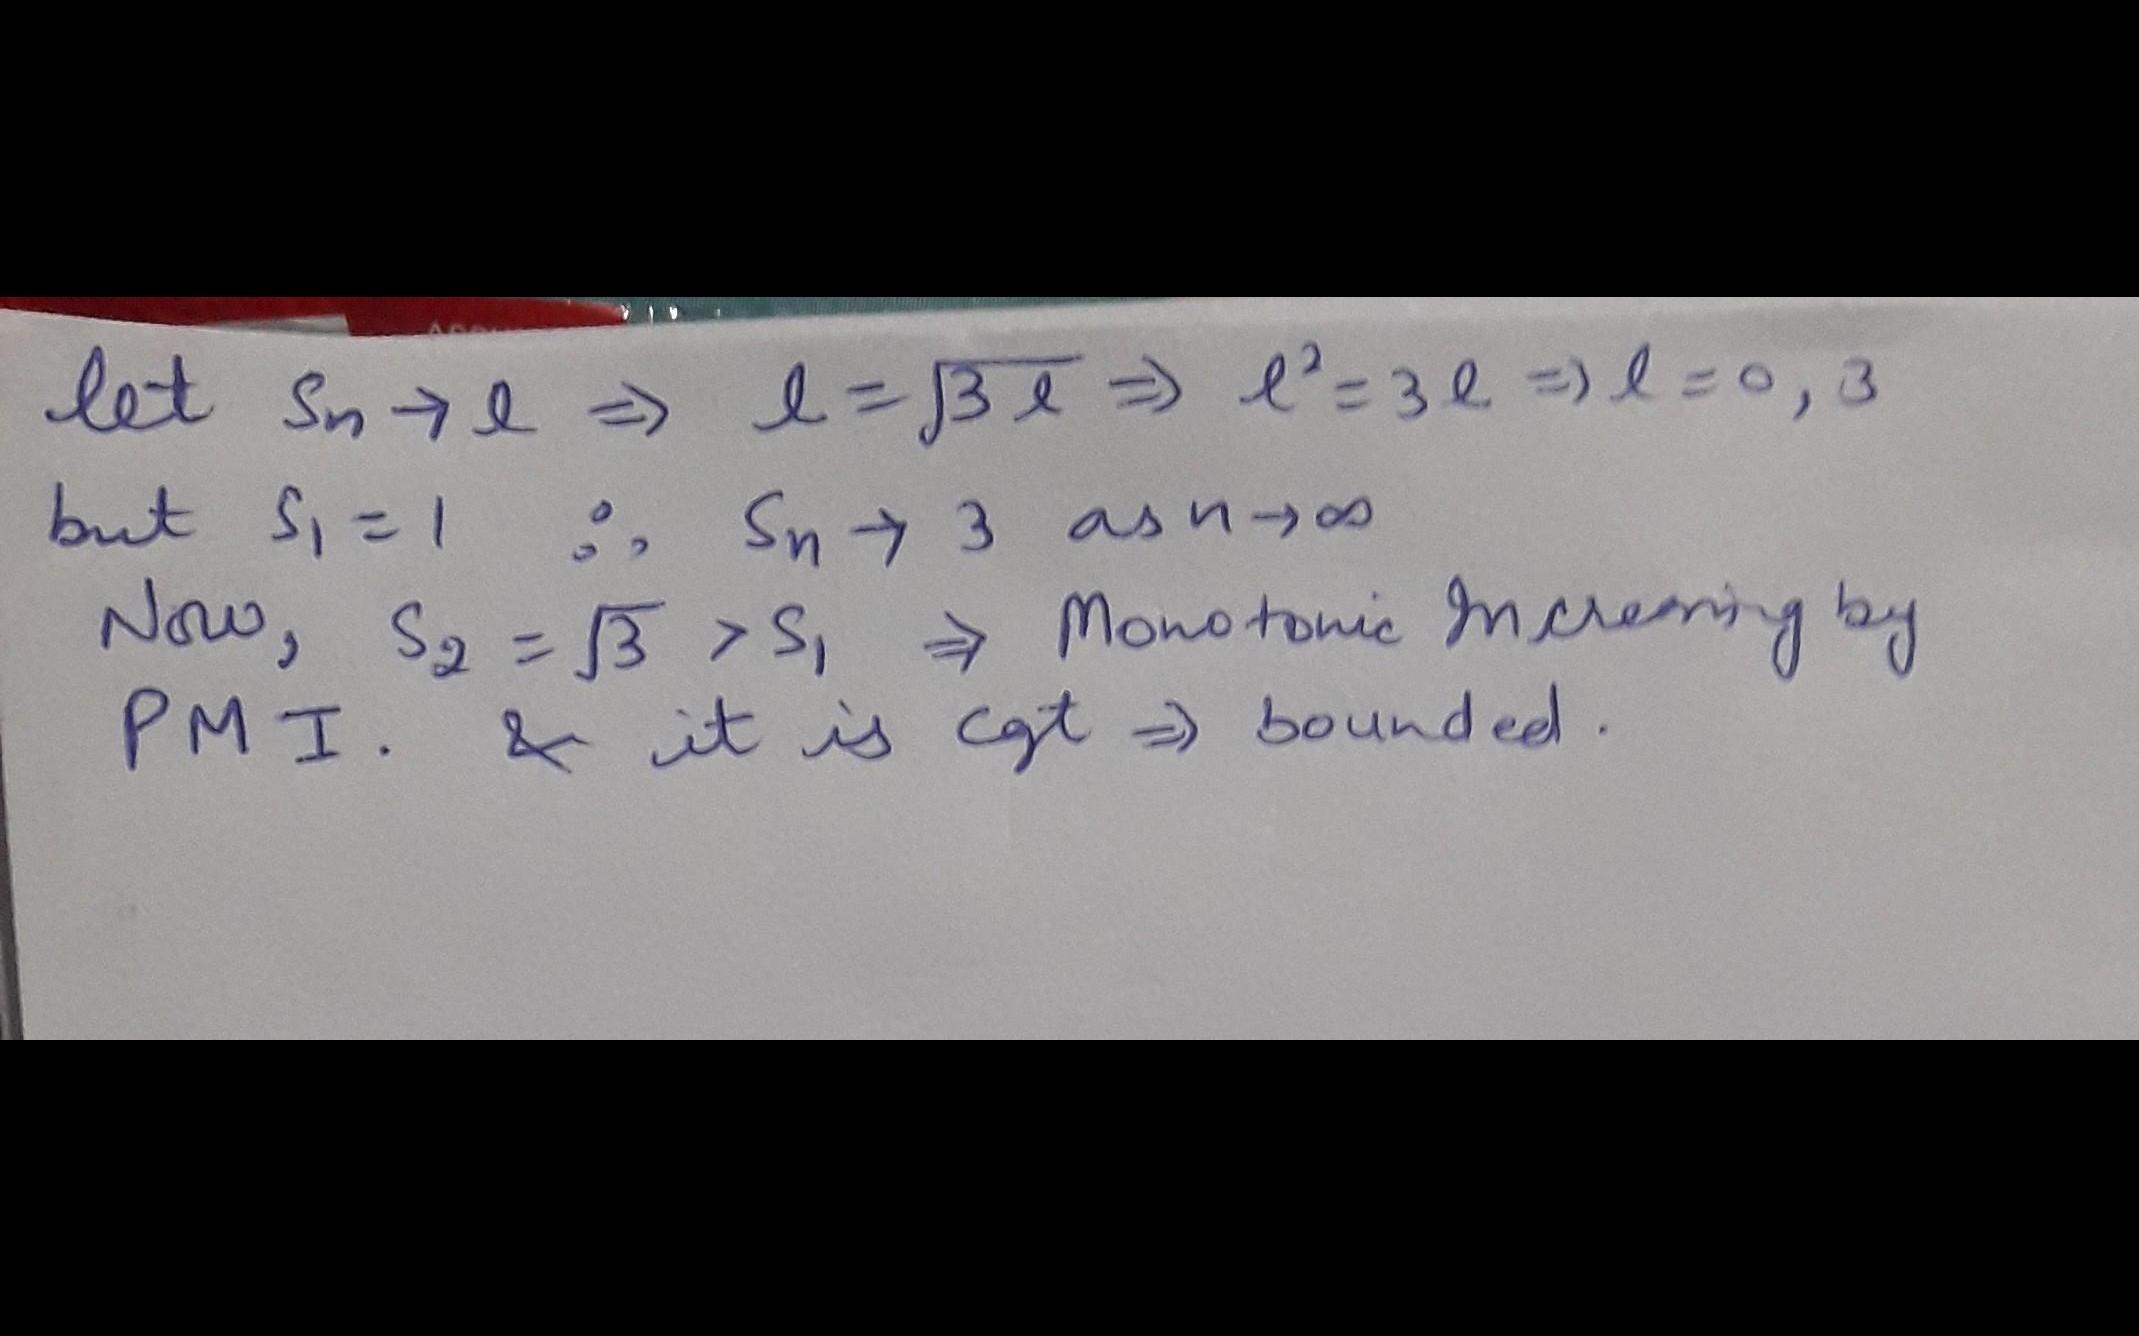 let Sn → l ⇒ l = √3l ⇒ l² = 3l ⇒ l = 0, 3
but S₁ = 1 ∴ Sn → 3 as n → ∞
Now, S₂ = √3 > S₁ ⇒ Monotonic Increasing by
PMI. & it is cgt ⇒ bounded.